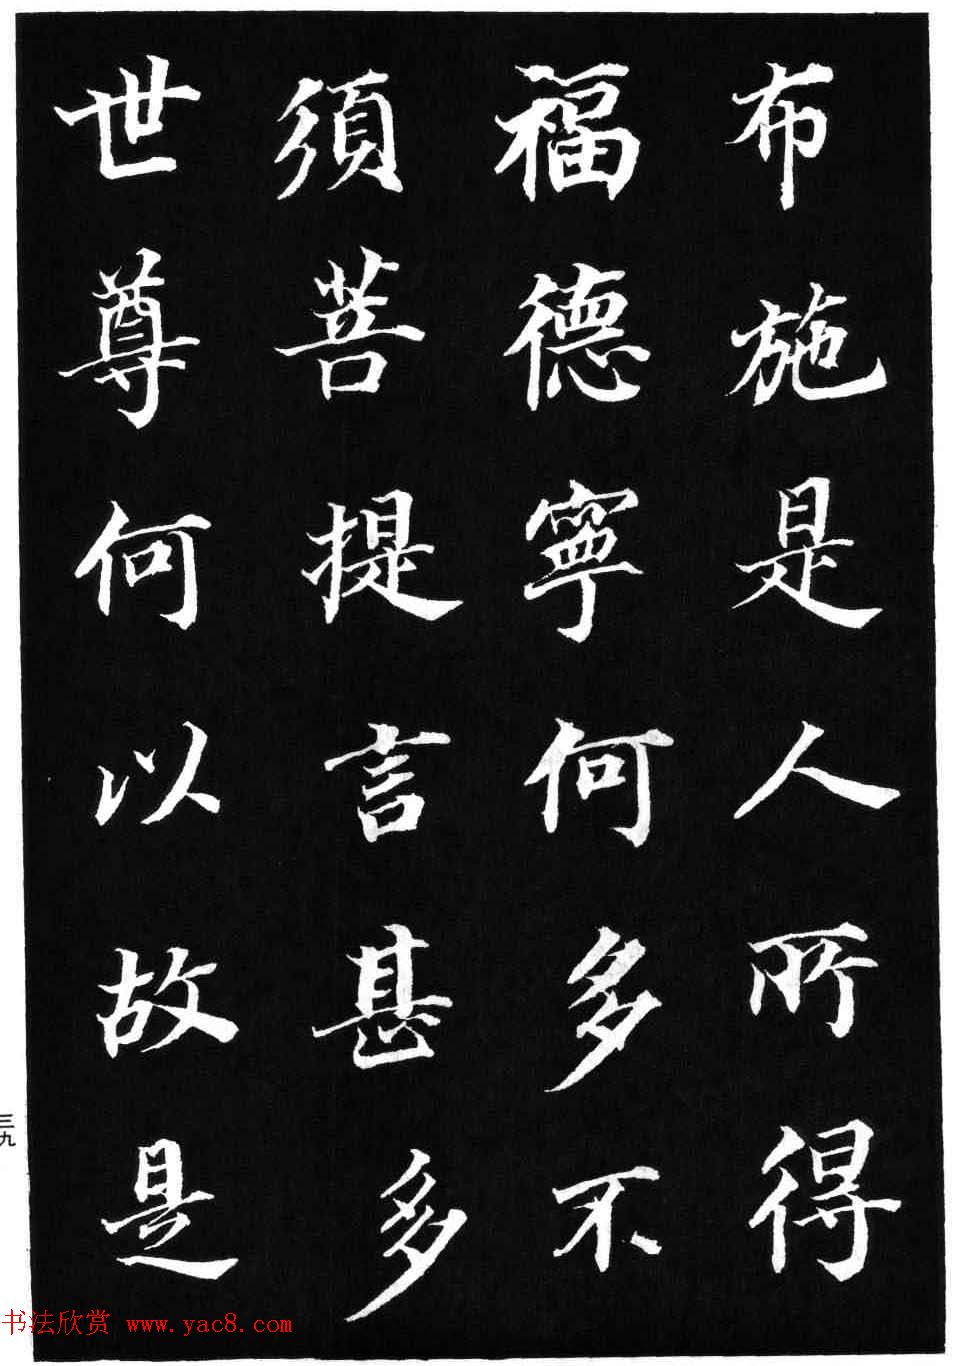 布施是人所得
福德寧何多不
須菩提言甚多
世尊何以故是
三九
书法欣赏 www.yac8.com